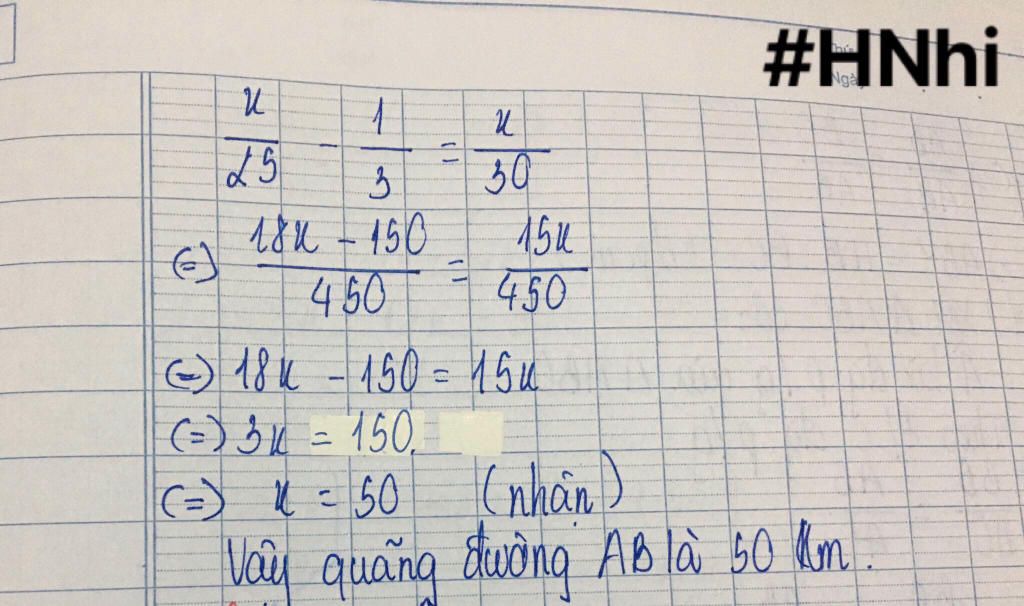 #HNhi
Ngày
x/25 - 1/3 = x/30
(=) 18x - 150/450 = 15x/450
(=) 18x - 150 = 15x
(=) 3x = 150.
(=) x = 50 (nhận)
Vậy quãng đường AB là 50 Km.